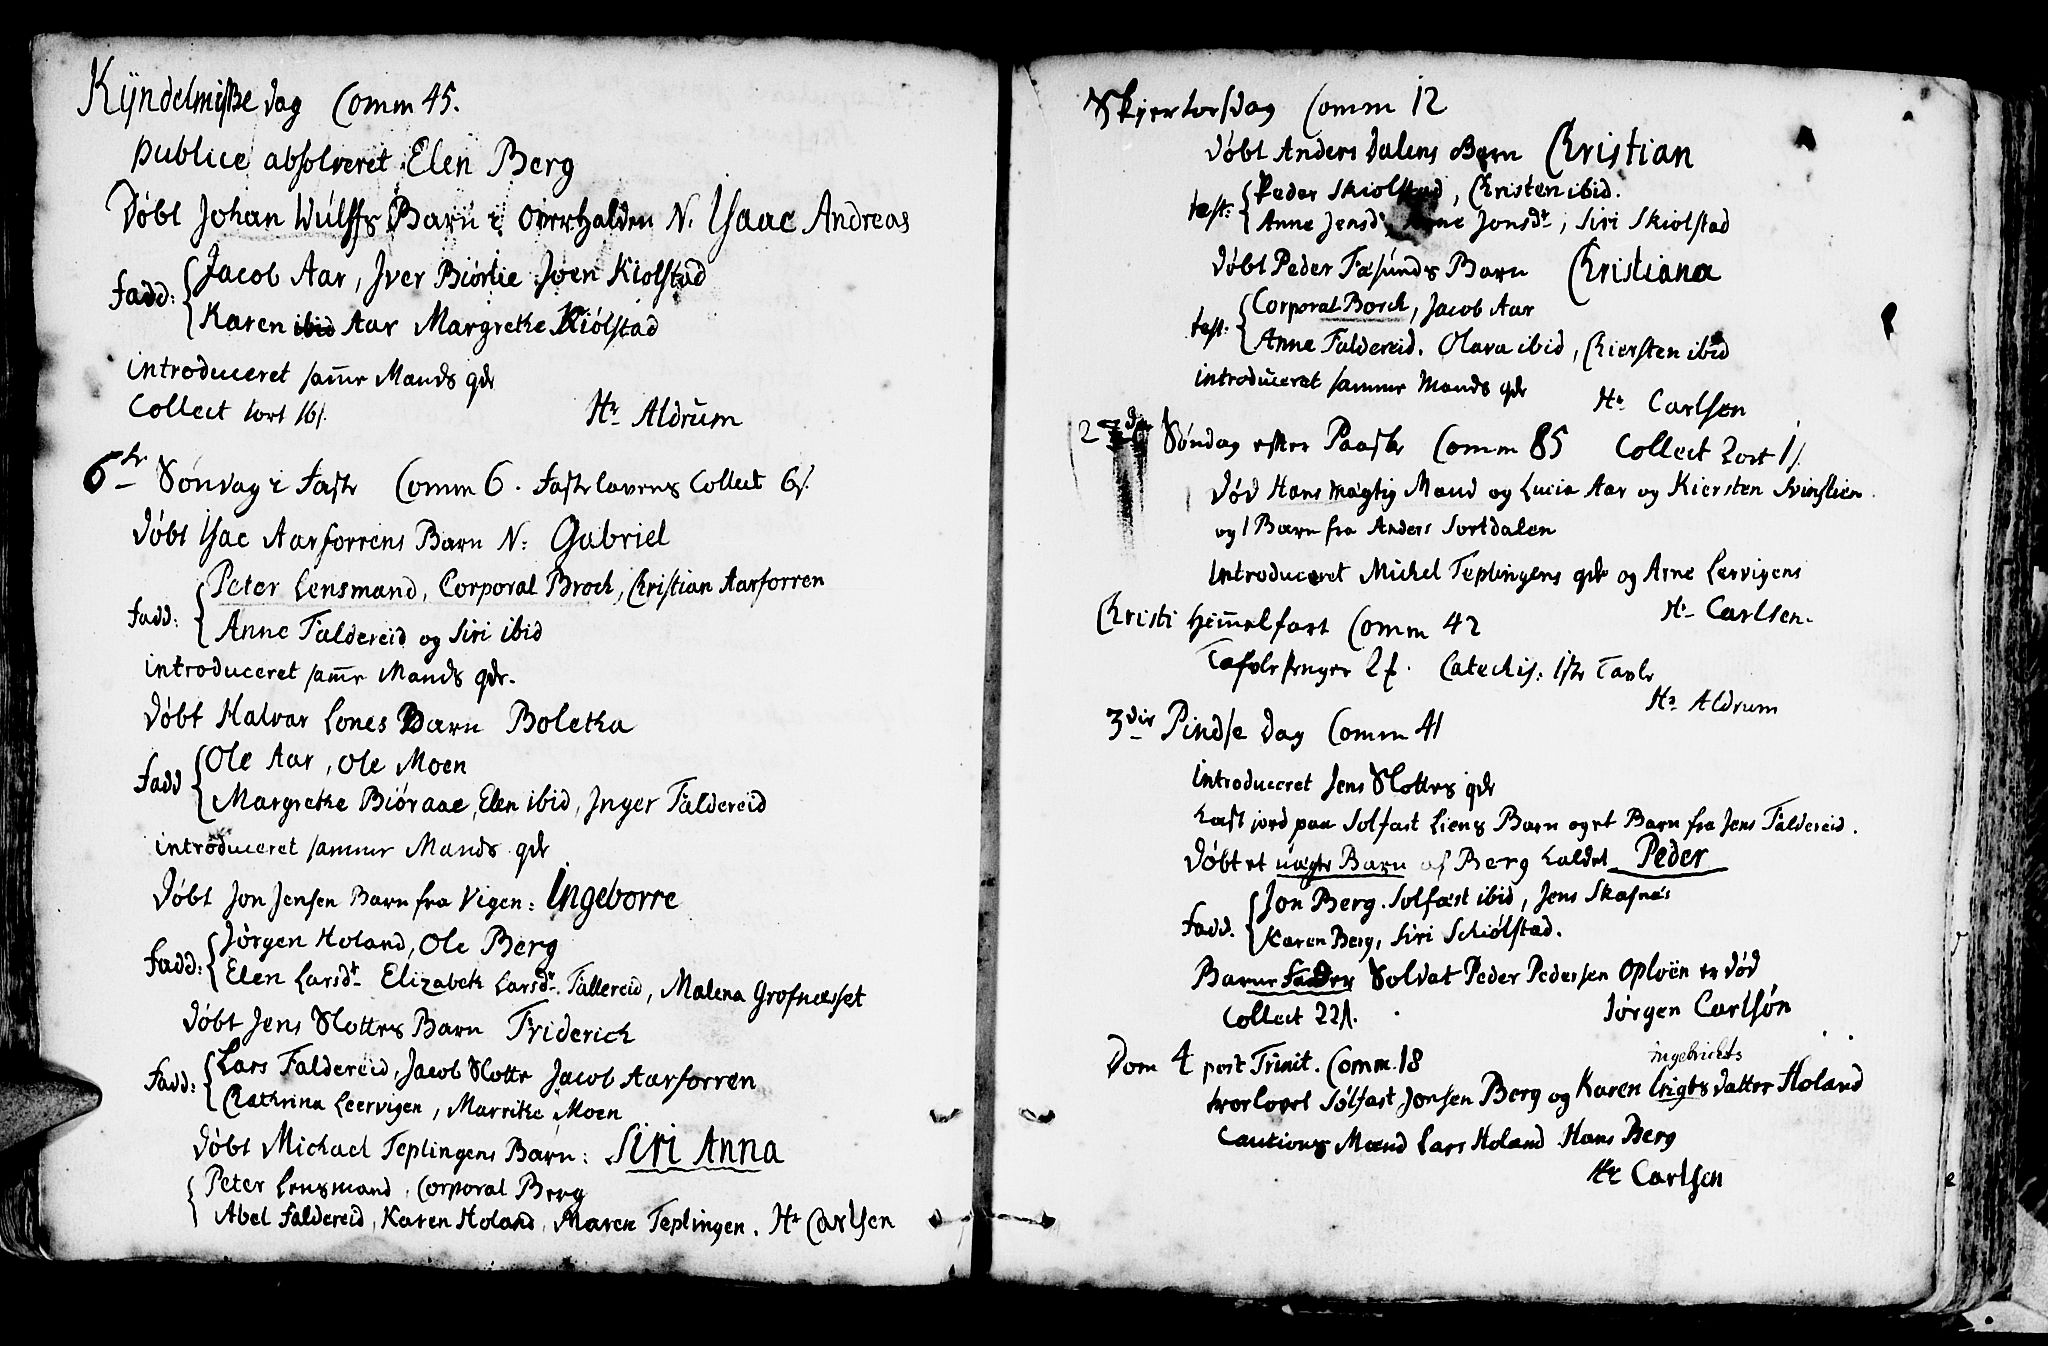 Kÿndelmisse dag Comm 45.
publice absolveret Elen Berg
Döbt Johan Wulffs Barn i Overhalden N. Isaac Andreas
fadd: Jacob Aar, Iver Biörlie Joen Kiolstad
Karen ibid Aar Margrethe Kiölstad
introduceret samme Mands qde
Collect 1ort 16s. Hr Aldrum
6te Söndag i Faste Comm 6. Fastelavens Collect 6s.
Döbt Isac Aarforrens Barn N: Gabriel
fadd: Peter Lensmand, Corporal Broch, Christian Aarforren
Anne Faldereid og Siri ibid
introduceret samme Mands qde.
Döbt Halvar Lones Barn Boletha
fadd Ole Aar, Ole Moen
Margrethe Biöraae, Elen ibid, Inger Faldereid
introduceret samme Mands qde
Döbt Jon Jensen Barn fra Vigen: Ingeborre
fadd: Jörgen Holand, Ole Berg
Elen Larsdr Elizabeth Larsdr. Fallereid, Malena Grofnæsset
Döbt Jens Slottes Barn Friderich
fadd: Lars Faldereid, Jacob Slotte Jacob Aarforren
Chathrina Leervigen, Marrithe Moen
Döbt Michael Teplingens Barn: Siri Anna
Peter Lensmand, Corporal Berg
Abel Faldereid, Karen Holand, Maren Teplingen. Hr Carlsen
Skjertorsdag Comm 12
Döbt Anders Dalens Barn Christian
test: Peder Skiolstad, Christen ibid.
Anne Jensd, Jonsdr, Siri Skiolstad
Döbt Peder Fæsunds Barn Christiana
test: Corporal Borch, Jacob Aar
Anne Faldereid. Olava ibid, Chiersten ibid
introduceret samme Mands qde
Hr Carlsen
Söndag efter Paaske Comm 85 Collect 2ort 1s.
Död Hans Mægtig Mand og Lucia Aar og Kiersten Svinslien
og 1 Barn fra Anders Sortdalen
Introduceret Michel Teplingens qde og Arne Lervigens
Hr Carlsen.
Christi Himmelfart Comm 42
2 Catechis: 1ste Tavle
Hr Aldrum
3die Pindse dag Comm 41
introduceret Jens Slottes qde
kast jord paa Solfast Liens Barn og et Barn fra Jens Faldereid.
Döbt et uægte Barn af Berg kaldet Peder
fadd. Jon Berg. Solfast ibid, Jens Skafnæs
Karen Berg, Siri Schiölstad.
Barne Fader Soldat Peder Pedersen Oploën er död
Collect 22s. Jörgen Carlsön
Dom 4 post Trinit. Comm. 18
ingebrichts
trolovet Sölfast Jonsen Berg og Karen Erigts datter Holand
Cautions Mænd Lars Holand Hans Berg
Hr Carlsen